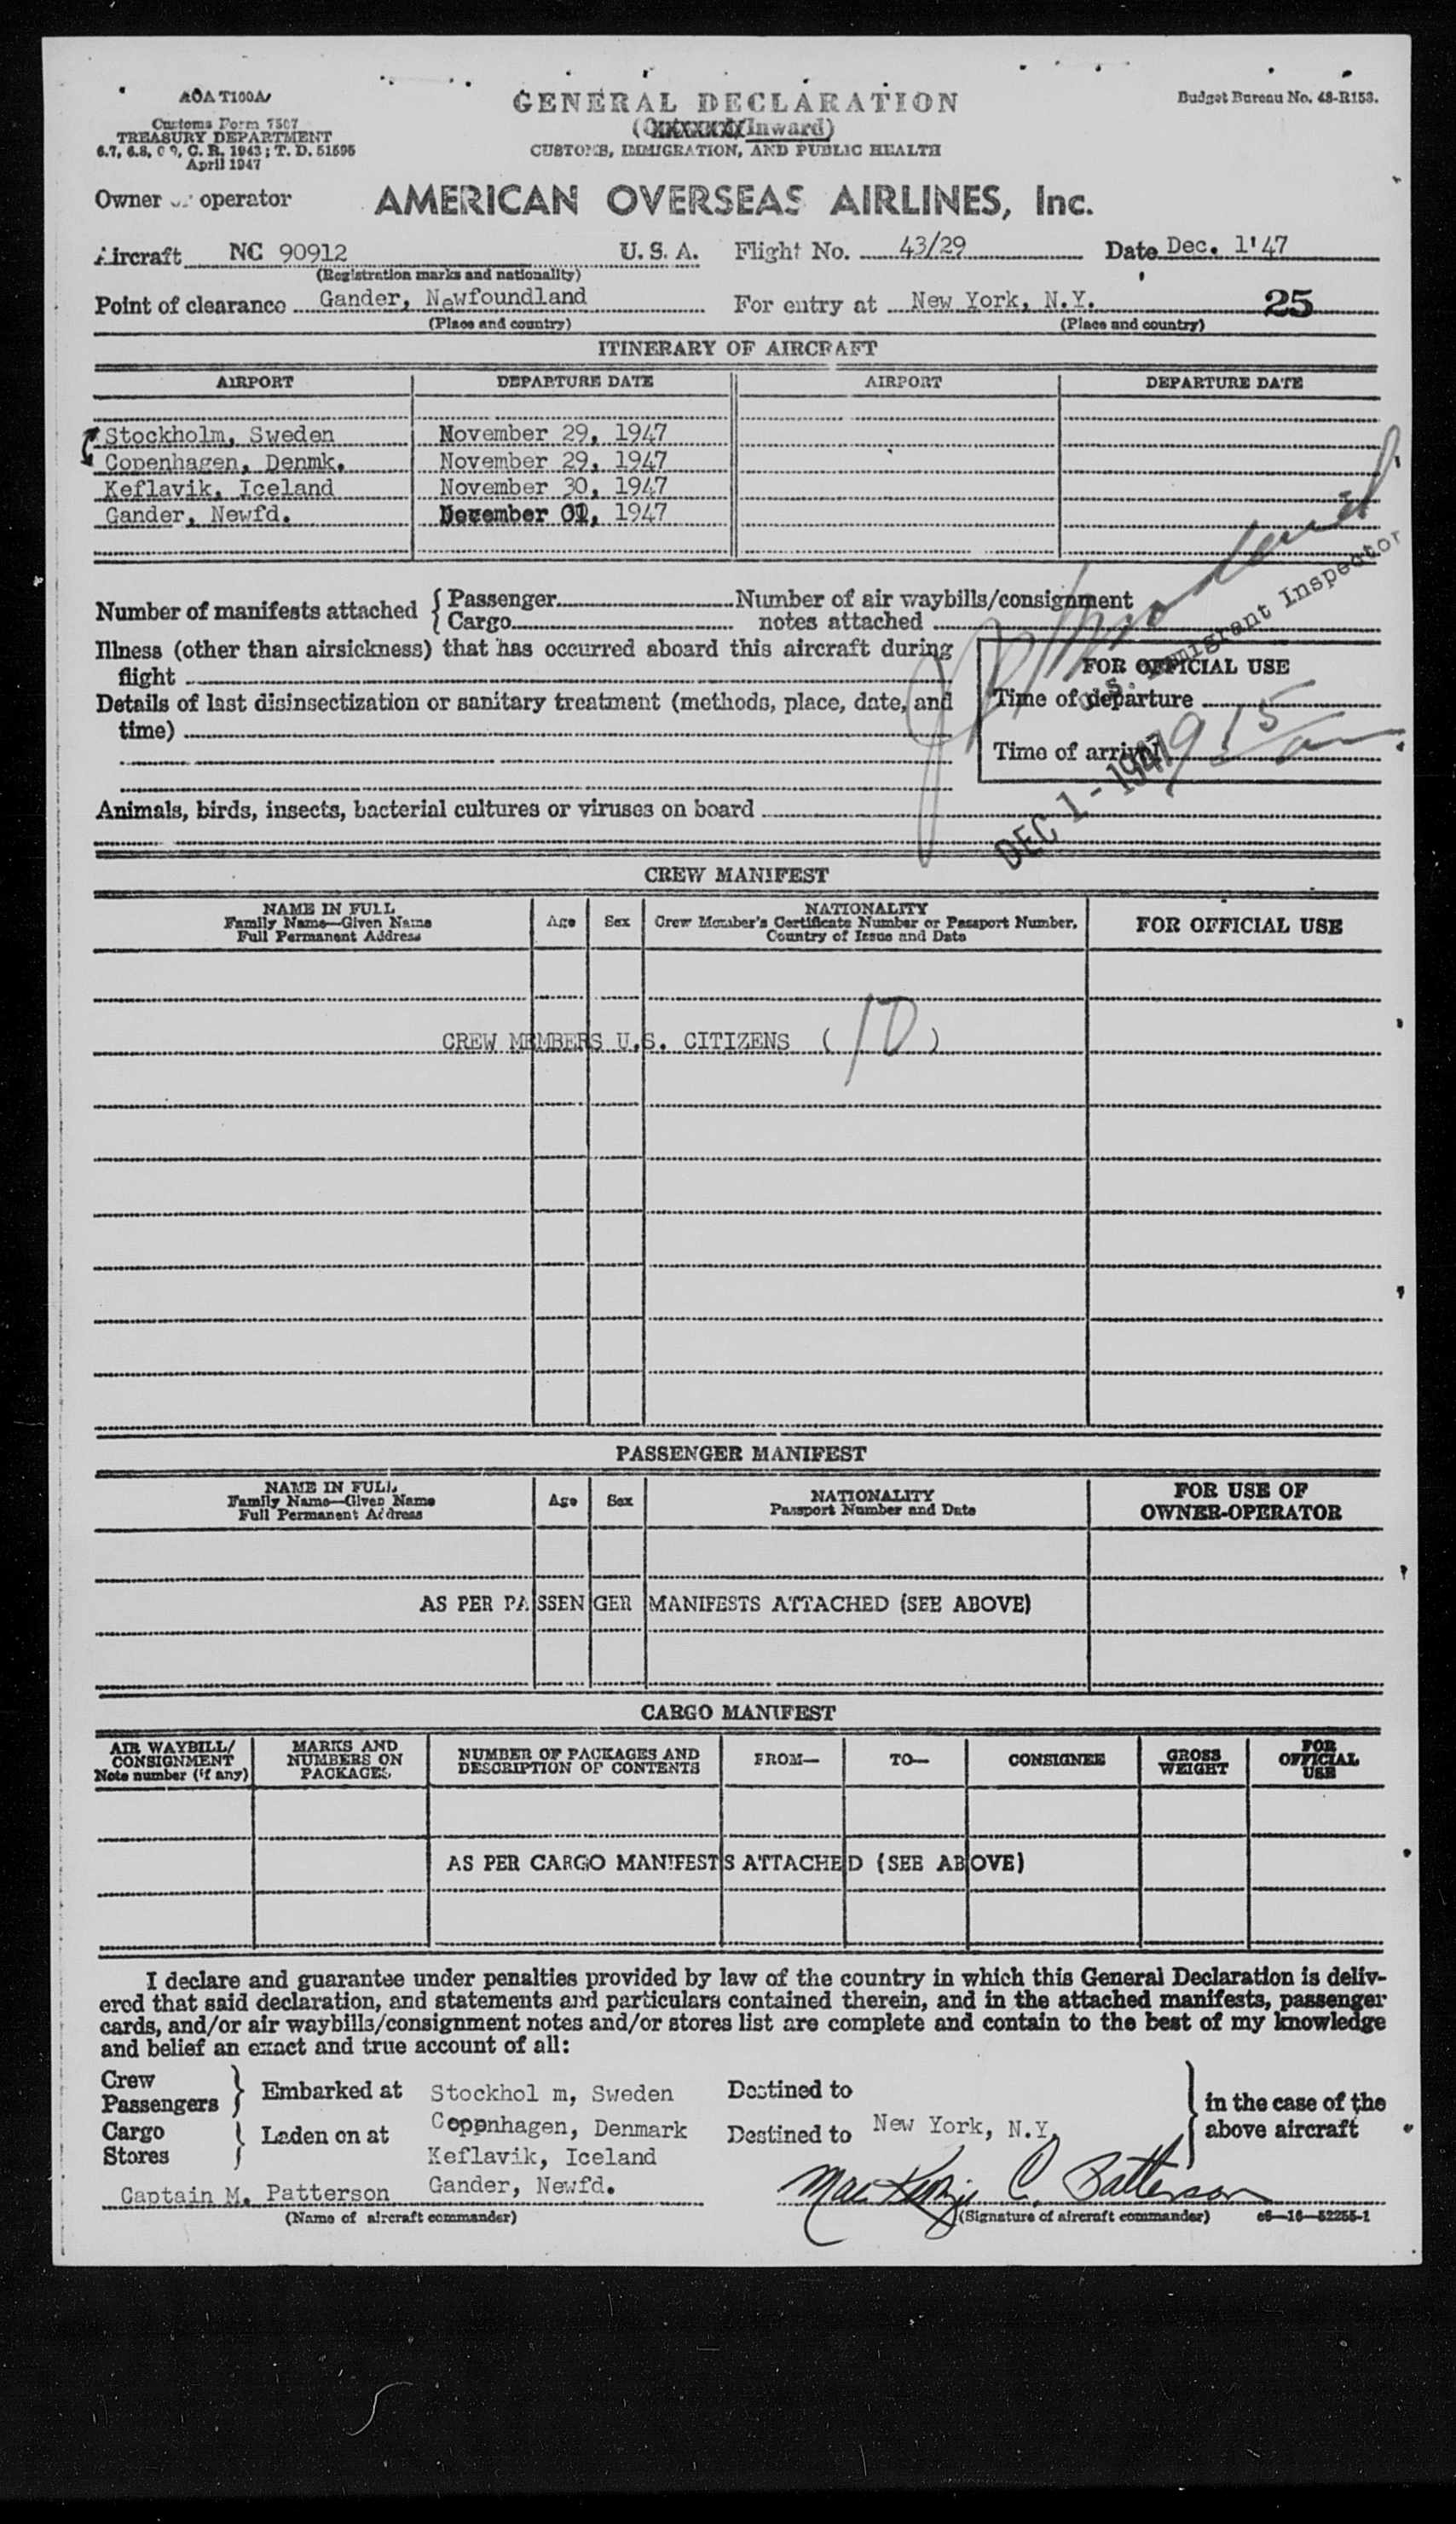 AOA T100A
Customs Form 7507
TREASURY DEPARTMENT
6.7, 6.8, 6.9, C. R. 1943; T. D. 51595
April 1947
GENERAL DECLARATION
(Inward)
CUSTOMS, IMMIGRATION, AND PUBLIC HEALTH
Budget Bureau No. 48-R153.
Owner or operator AMERICAN OVERSEAS AIRLINES, Inc.
Aircraft NC 90912 U. S. A. Flight No. 43/29 Date Dec. 1'47
(Registration marks and nationality)
Point of clearance Gander, Newfoundland For entry at New York, N.Y. 25
(Place and country) (Place and country)
ITINERARY OF AIRCRAFT
AIRPORT DEPARTURE DATE AIRPORT DEPARTURE DATE
Stockholm, Sweden November 29, 1947
Copenhagen, Denmk. November 29, 1947
Keflavik, Iceland November 30, 1947
Gander, Newfd. December 01, 1947
Number of manifests attached { Passenger Number of air waybills/consignment
Cargo notes attached
U. S. Immigrant Inspector
Illness (other than airsickness) that has occurred aboard this aircraft during
flight
Details of last disinsectization or sanitary treatment (methods, place, date, and
time)
FOR OFFICIAL USE
Time of departure
Time of arrival 9 15 am
DEC 1 - 1947
Animals, birds, insects, bacterial cultures or viruses on board
CREW MANIFEST
NAME IN FULL
Family Name—Given Name
Full Permanent Address
Age Sex
NATIONALITY
Crew Member's Certificate Number or Passport Number,
Country of Issue and Date
FOR OFFICIAL USE
CREW MEMBERS U.S. CITIZENS ( 10 )
PASSENGER MANIFEST
NAME IN FULL
Family Name—Given Name
Full Permanent Address
Age Sex
NATIONALITY
Passport Number and Date
FOR USE OF
OWNER-OPERATOR
AS PER PASSENGER MANIFESTS ATTACHED (SEE ABOVE)
CARGO MANIFEST
AIR WAYBILL/
CONSIGNMENT
Note number (if any)
MARKS AND
NUMBERS ON
PACKAGES
NUMBER OF PACKAGES AND
DESCRIPTION OF CONTENTS
FROM— TO— CONSIGNEE
GROSS
WEIGHT
FOR
OFFICIAL
USE
AS PER CARGO MANIFESTS ATTACHED (SEE ABOVE)
I declare and guarantee under penalties provided by law of the country in which this General Declaration is deliv-
ered that said declaration, and statements and particulars contained therein, and in the attached manifests, passenger
cards, and/or air waybills/consignment notes and/or stores list are complete and contain to the best of my knowledge
and belief an exact and true account of all:
Crew
Passengers } Embarked at Stockhol m, Sweden Destined to
Cargo
Stores } Laden on at Copenhagen, Denmark Destined to New York, N.Y.
in the case of the
above aircraft
Keflavik, Iceland
Gander, Newfd.
Captain M. Patterson MacKenzie C. Patterson
(Name of aircraft commander) (Signature of aircraft commander) c6—16—52255-1